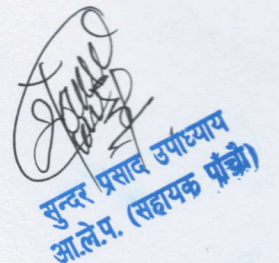 सुन्दर प्रसाद उपाध्याय
आ.ले.प. (सहायक पाँचौं)